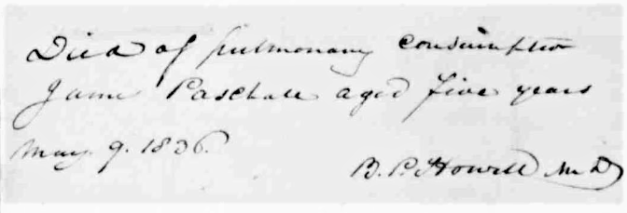 Died of pulmonary consumption
James Paschall aged five years
May. 9. 1836.
B. P. Howell M.D